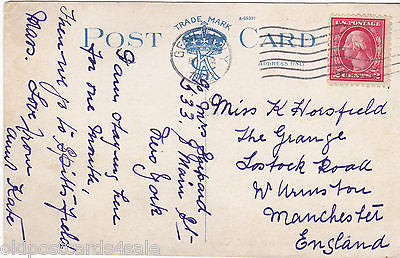 TRADE MARK
A-69331
POST CARD
ADDRESS ONLY
U.S. POSTAGE
2 CENTS 2
c/o Mrs
533 Main St
New York
I am staying here
for one month
Then we go to
Mass. Love from
Aunt Kate
Miss K Horsfield
The Grange
Lostock Road
W Urmston
Manchester
England
oldpostcards4sale